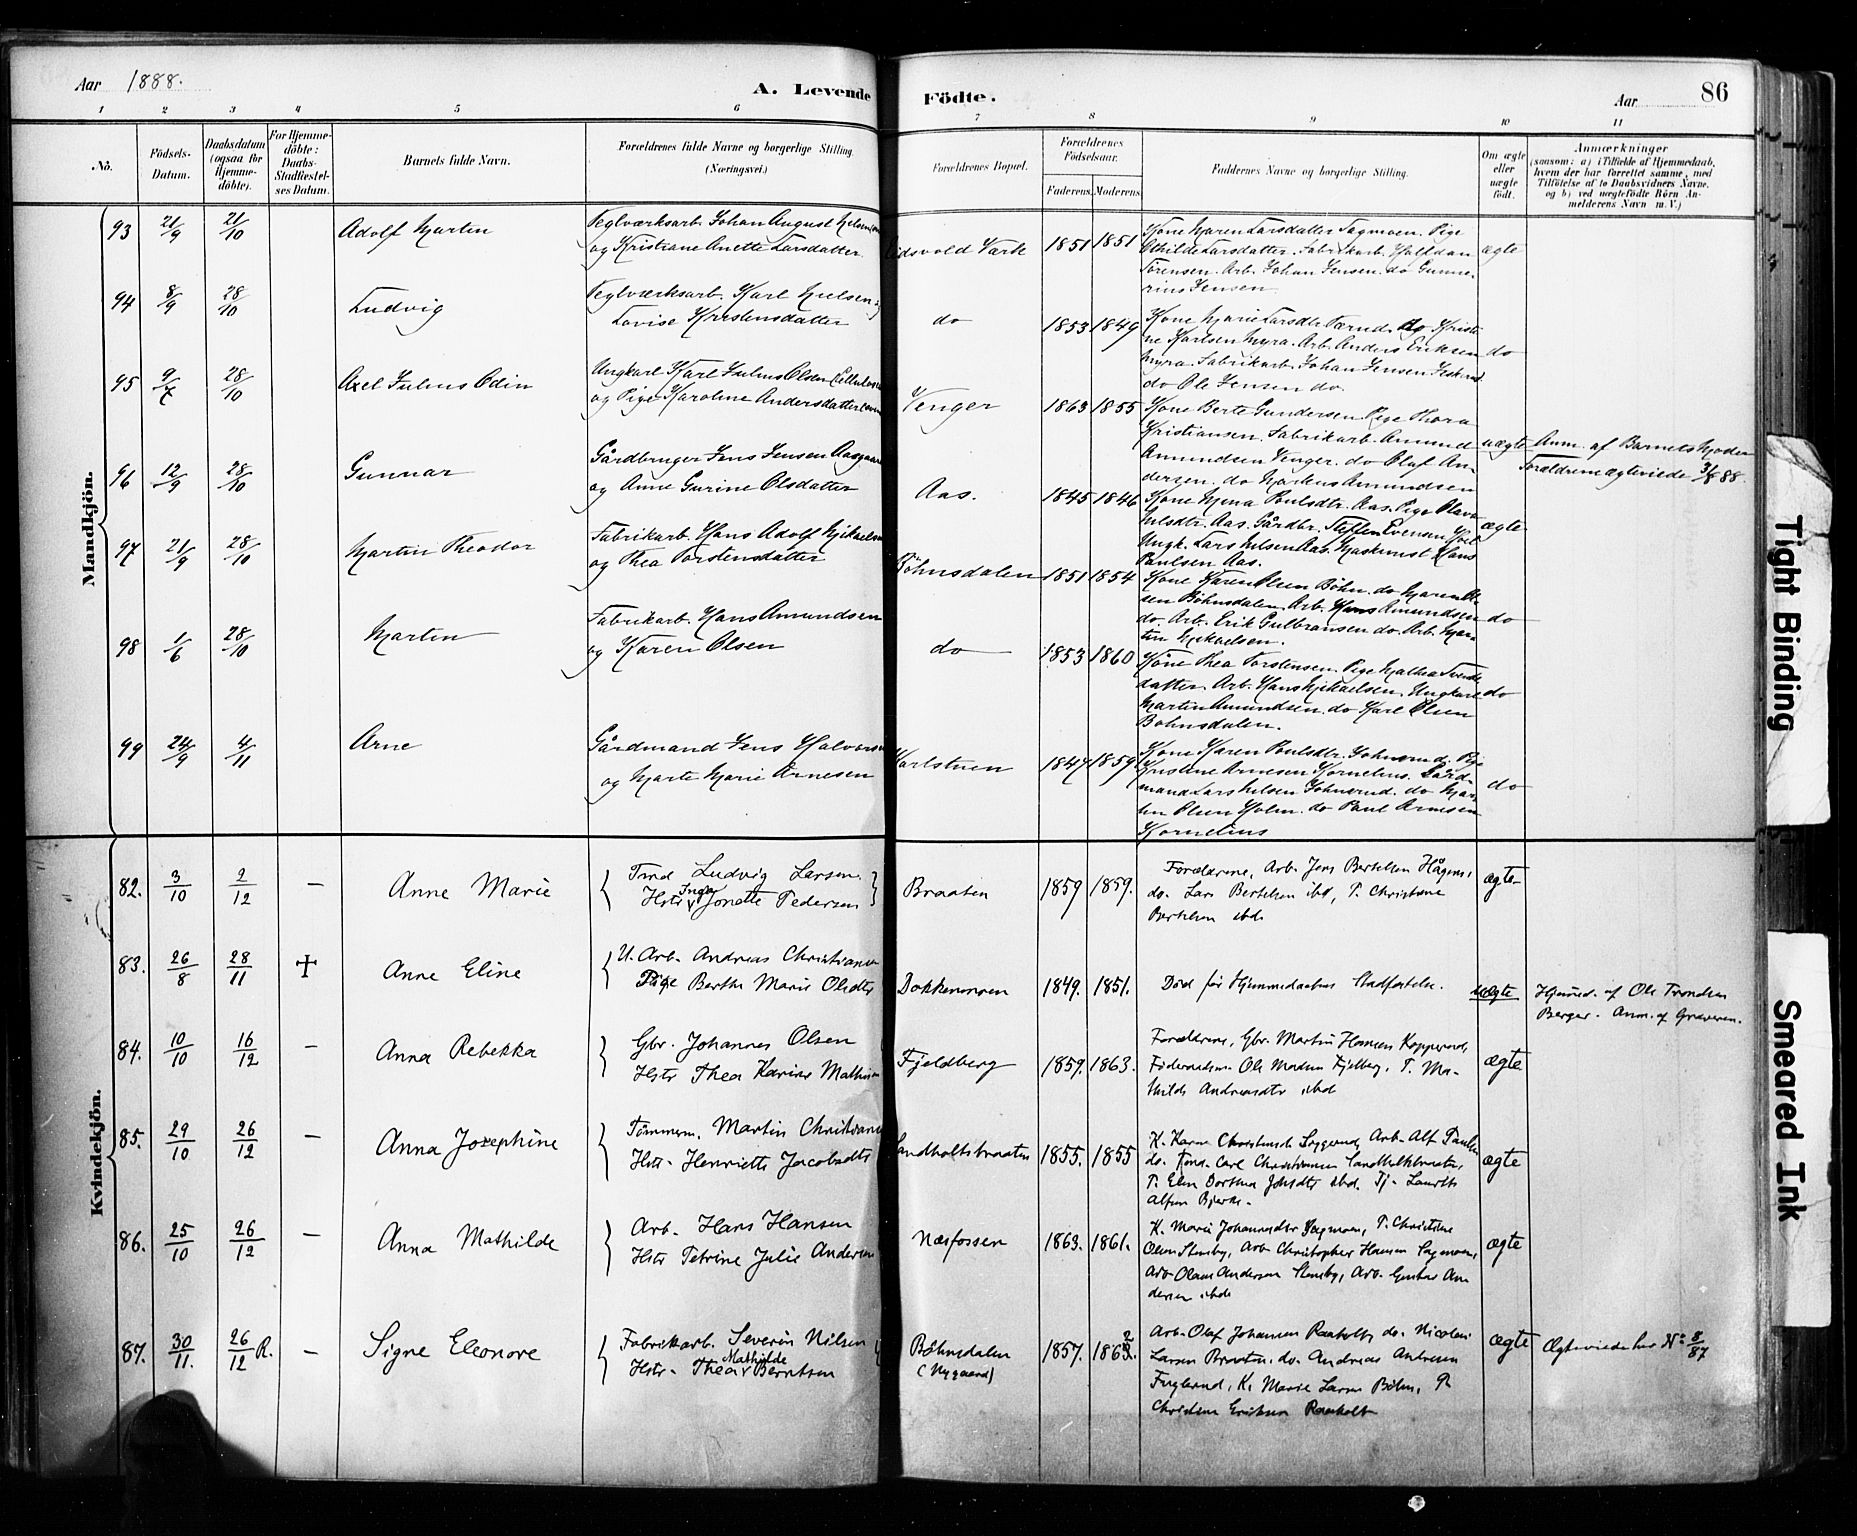 Aar 1888.
A. Levende
Födte.
Aar
86
1 2 3 4 5 6 7 8 9 10 11
No.
Födsels-
Datum.
Daabsdatum
(ogsaa for
Hjemme-
döbte).
For Hjemme-
döbte:
Daabs-
Stadfæstel-
ses Datum.
Barnets fulde Navn.
Forældrenes fulde Navne og borgerlige Stilling.
(Næringsvei.)
Forældrenes Bopæl.
Forældrenes
Födselsaar.
Faderens. Moderens.
Faddernes Navne og borgerlige Stilling.
Om ægte
eller
uægte
födt.
Anmærkninger
(saasom: a) i Tilfælde af Hjemmedaab,
hvem der har forrettet samme, med
Tilföielse af to Daabsvidners Navne,
og b) ved uægtefödte Börn An-
melderens Navn m. V.)
Mandkjön.
93 21/9 21/10 Adolf Martin
Teglværksarb. Johan August Nilsen
og Kristiane Anette Larsdatter
Eidsvold Værk 1851 1851
Kone Maren Larsdatter Sagmoen. Pige
Othilde Larsdatter. Fabrikarb. Halfdan
Sörensen. Arb. Johan Jensen. do Gunne-
rius Jensen
ægte
94 8/9 28/10 Ludvig
Teglværksarb. Karl Nielsen og
Lovise Kristensdatter
do 1853 1849
Kone Marie Larsdtr do Kristi-
ne Karlsen Myra. Arb. Anders Eriksen
Myra. Fabrikarb. Johan Jensen
do Ole Jensen do.
do
95 9/7 28/10 Axel Julius Odin
Ungkarl Karl Julius Olsen
og Pige Karoline Andersdatter
Venger 1863 1855
Kone Berte Gundersen. Pige Thora
Kristiansen. Fabrikarb. Amund
Amundsen Venger. do Olaf An-
dersen. do Amundsen
uægte
Anm. af Barnets Moder
Forældrene ægteviede 3/8 88.
96 12/9 28/10 Gunnar
Gårdbruger Jens Jensen Aasgaard
og Anne Gurine Olsdatter
Aas. 1845 1846
Kone Mina Poulsdtr. Aas. Pige Olava
Nilsdtr. Aas. Gårdbr. Steffen Evensen
Ungk. Lars Nilsen Aas. Maskinist Hans
Paulsen Aas.
ægte
97 21/9 28/10 Martin Theodor
Fabrikarb. Hans Adolf Mikaelsen
og Thea Torstensdatter
Böhnsdalen 1851 1854
Kone Karen Olsen Böhn. do Maren Ol-
sen Böhnsdalen. Arb. Hans Amundsen
do. Arb. Erik Gulbransen do. Arb. Mar-
tin Mikaelsen.
do
98 1/6 28/10 Martin
Fabrikarb. Hans Amundsen
og Karen Olsen
do 1853 1860
Kone Thea Torstensen. Pige Mathea
datter. Arb. Hans Mikaelsen. Ungkarl
Martin Amundsen. do Karl Olsen
Böhnsdalen.
do
99 24/9 4/11 Arne
Gårdmand Jens Halvorsen
og Marte Marie Arnesen
Karlstuen 1847 1859
Kone Karen Poulsdtr. Pige
Kristine Arnesen Kornelius. Gård-
mand Lars Nilsen do Mar-
tin Olsen Holm. do Paul Arnesen
Kornelius
do
Kvindekjön.
82. 3/10 2/12 – Anne Marie
Ludvig Larsen
Hstr Inger Jonette Pedersen
Braaten 1859 1859.
Forældrene, Arb. Jens Bertelsen
do. Lars Bertelsen ibd, P. Christine
Bertelsen ibd.
ægte
83. 26/8 28/11 ✝ Anne Eline
U. Arb. Andreas Christiansen
Pige Berthe Marie Olsdtr
Dokkenmoen 1849. 1851.
Död för Hjemmedaabens Stadfæstelse.
uægte
Hjemmed. af Ole Trondsen
Berger. Anm. af Graveren.
84. 10/10 16/12 – Anna Rebekka
Gbr. Johannes Olsen
Hstr Thea Karine Mathisen
Fjeldberg 1859. 1863.
Forældrene, Gbr. Martin Hansen
Ole Madsen Fjelberg, P. Ma-
thilde Andreasdtr ibd
ægte
85. 29/10 26/12 – Anna Josephine
Tömmerm. Martin Christiansen
Hstr. Henriette Jacobsdtr
Landholtsbraaten 1855. 1855
K. Karen Arb. Alf Paulsen
do. Carl Christiansen Landholtsbraaten,
P. Elen Dorthea ibd. Tj. Lauritz
Alfsen Bjerke.
ægte
86. 25/10 26/12 – Anna Mathilde
Arb. Hans Hansen
Hstr Petrine Julie Andersen
Næsfossen 1863. 1861.
K. Marie Johannesdtr Sagmoen, P. Christine
Olsen Stensby, Arb. Christopher Hansen Sagmoen,
Arb. Olaus Andersen Stensby, Arb. Gustav An-
dersen ibd.
ægte
87. 30/11. 26/12 R. – Signe Eleonore
Fabrikarb. Severin Nilsen
Hstr. Thea Mathilde Berntsen
Böhnsdalen
(Nygaard)
1857. 1862.
Arb. Olaf Johansen Raaholt, do. Nicolai
Larsen Braaten. do. Andreas Andresen
Fuglerud, K. Marie Larsen Böhn, P.
Christine Eriksen Raaholt
ægte
Ægteviede her No. 8/87
Tight Binding
Smeared Ink